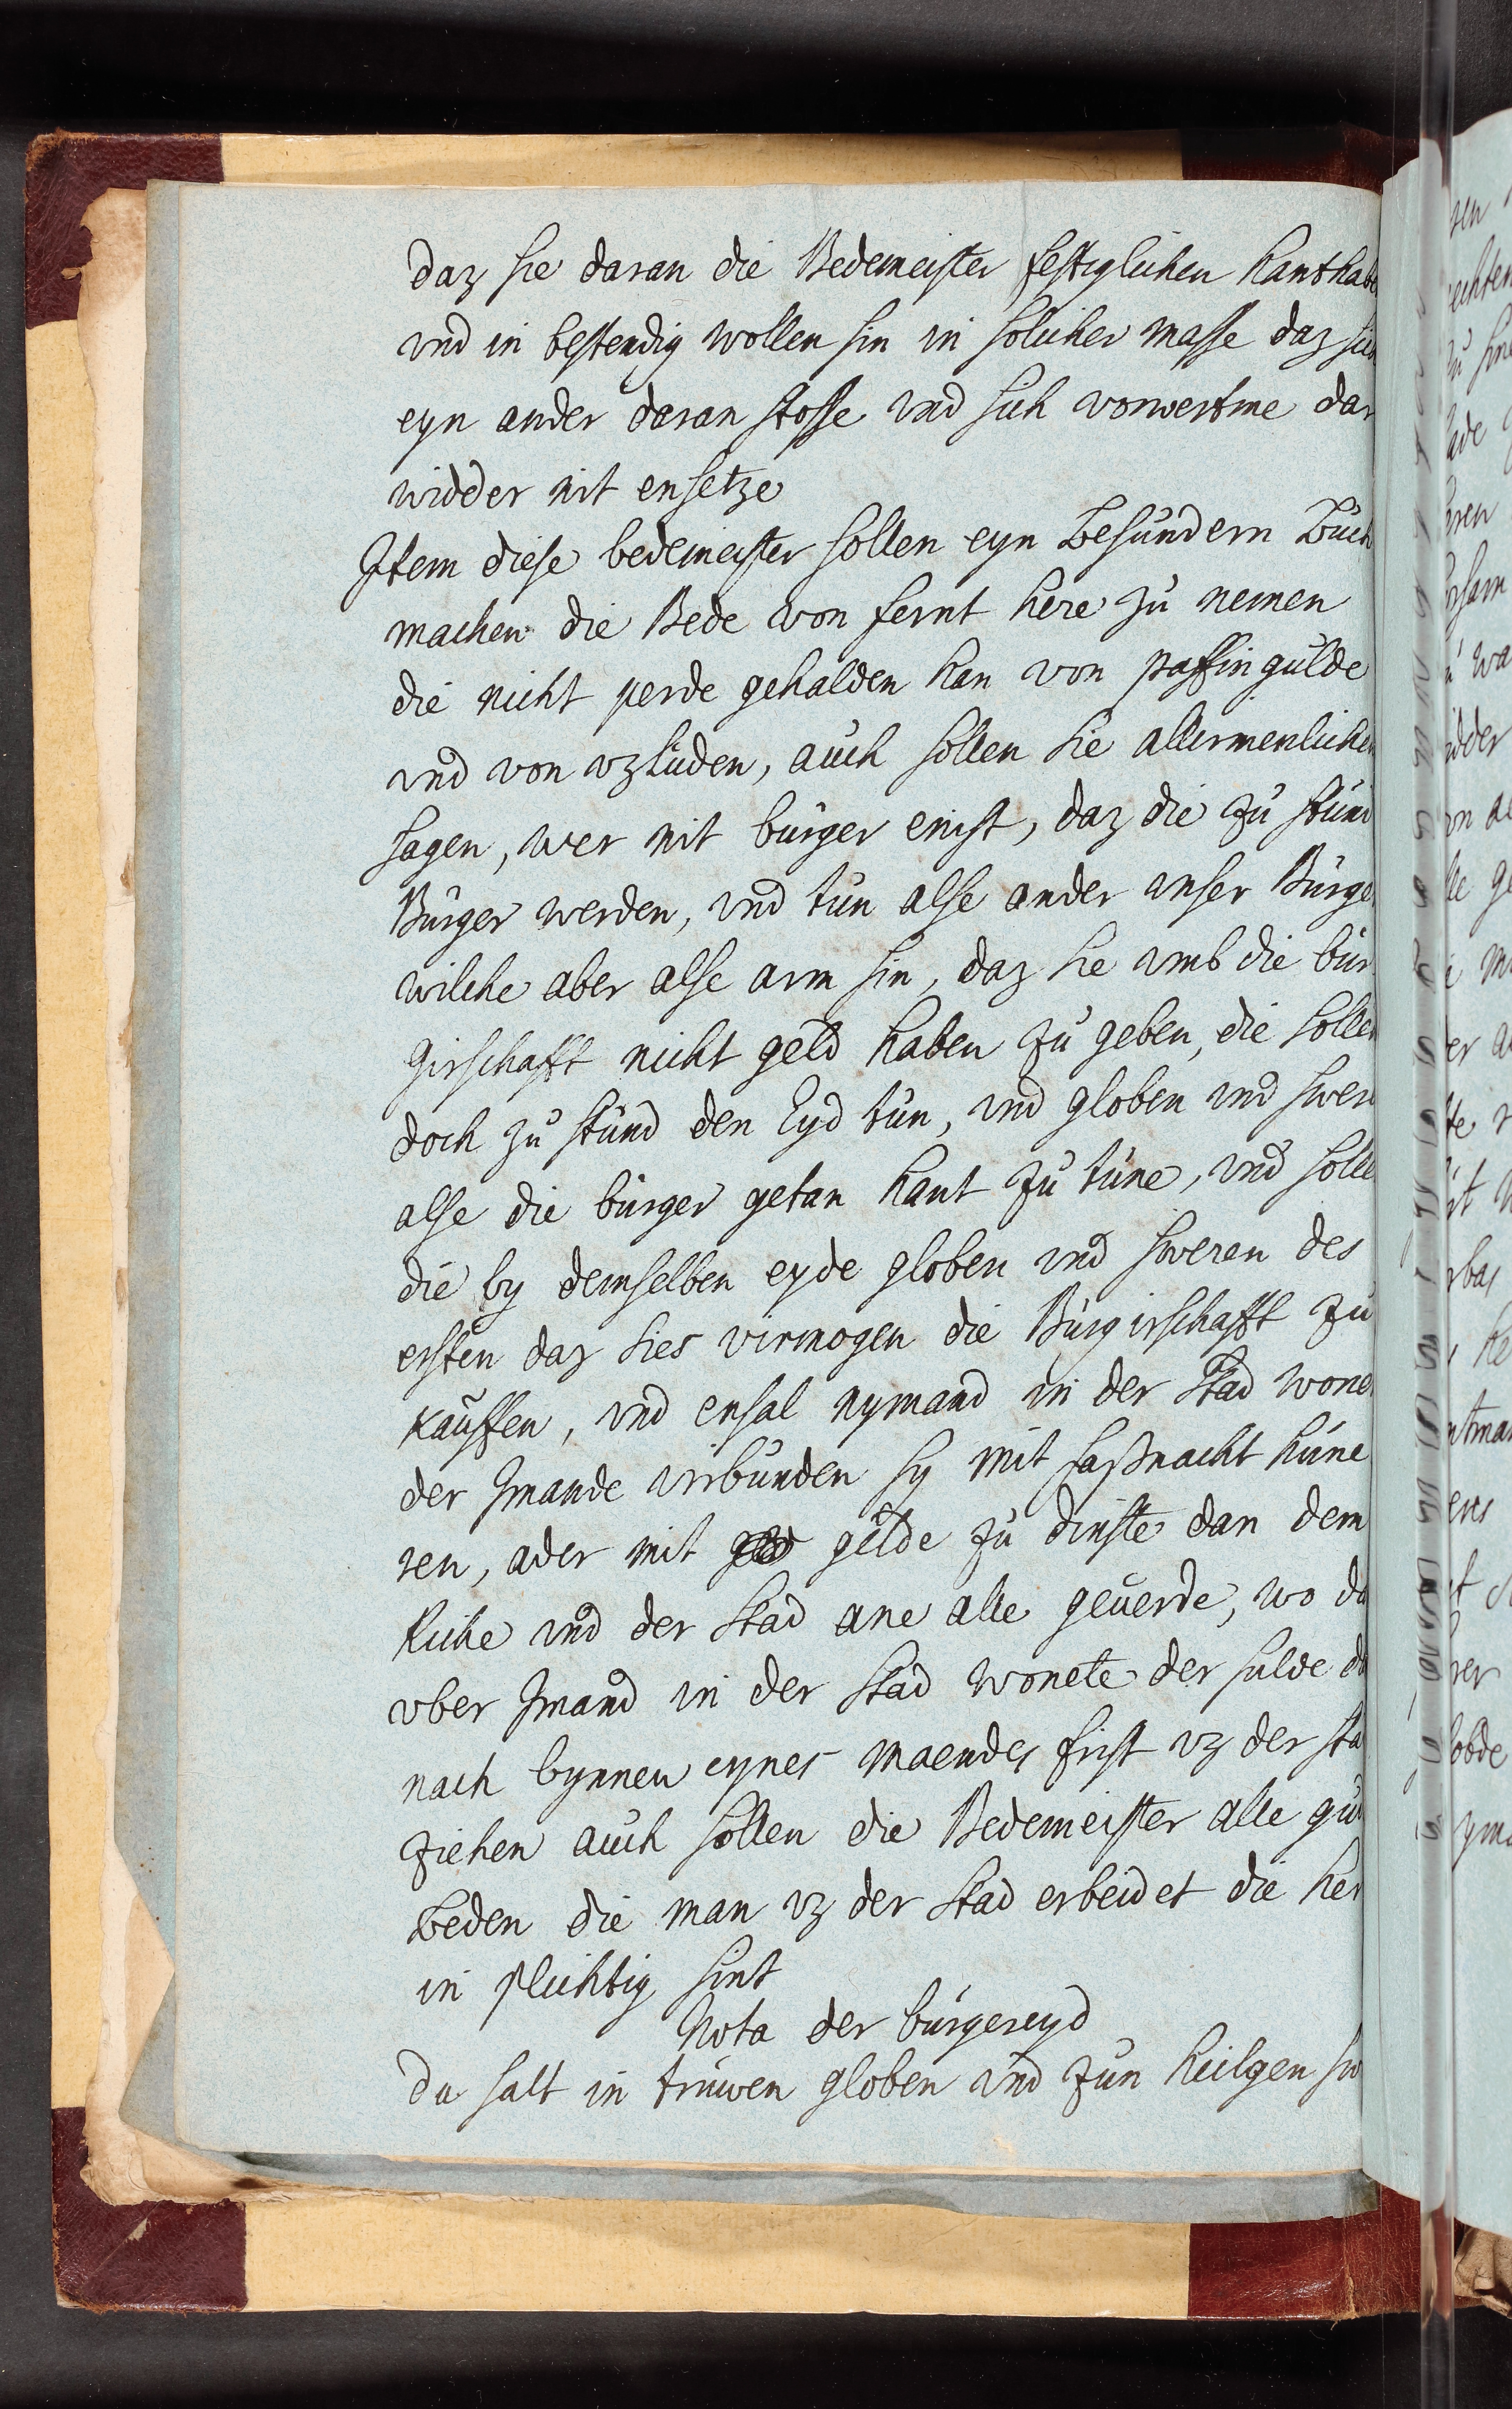 daz sie daran die Bedemeister festiglichen hanthabe
vnd in bestendig wollen sin in solicher masse daz sich
eyn ander daran stosse vnd sich vorwertme dar
widder nit ensetze
Item diese bedemeister sollen eyn besundern Buch
machen die Bede von fernt here zu nemen
die nicht perde gehalden han von paffin gulde
vnd von vzluden, auch sollen sie allirmenlichen
sagen, wer nit burger enist, daz die zu stund
Burger werden, vnd tun alse ander vnser Burger
wilche aber alse arm sin, daz sie vmb die bur
girschafft nicht geld haben zu geben, die sollen
doch zu stund den Eyd tun, vnd globen vnd swern
alse die burger getan hant zu tune, vnd solle
die by demselben eyde globen vnd sweren des
ersten daz sies virmogen die Burgirschafft zu
kauffen, vnd ensal nymand in der Stad wone
der Imande virbunden sy mit faßnacht hune
ren, ader mit gelde zu dinste dan dem
Riche vnd der Stad ane alle geuerde, wo da
vber Imand in der Stad wonete der sulde da
nach bynnen eynes maendes frist vz der sta
ziehen auch sollen die Bedemeister alle gut
beden die man vz der Stad erbeidet die her
in plichtig sint
Nota der burgereyd
du salt in truwen globen vnd zun heilgen sw